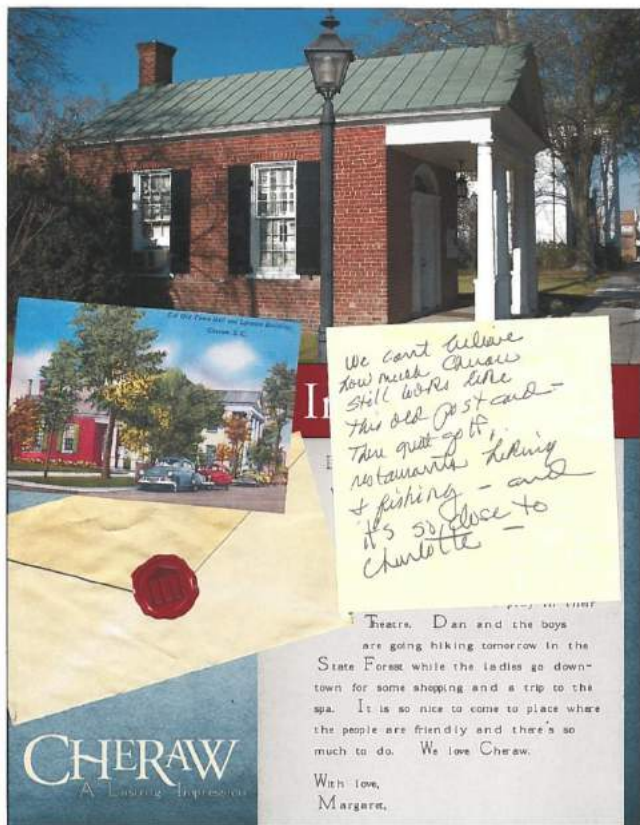 Old Town Hall and
Cheraw, S.C.
In
We can't believe
how much Cheraw
still looks like
this old postcard -
There great golf,
restaurants hiking
& fishing - and
it's so close to
Charlotte -
play in their
Theatre. Dan and the boys
are going hiking tomorrow in the
State Forest while the ladies go down-
town for some shopping and a trip to the
spa. It is so nice to come to place where
the people are friendly and there's so
much to do. We love Cheraw.
With love,
Margaret,
CHERAW
A Lasting Impression